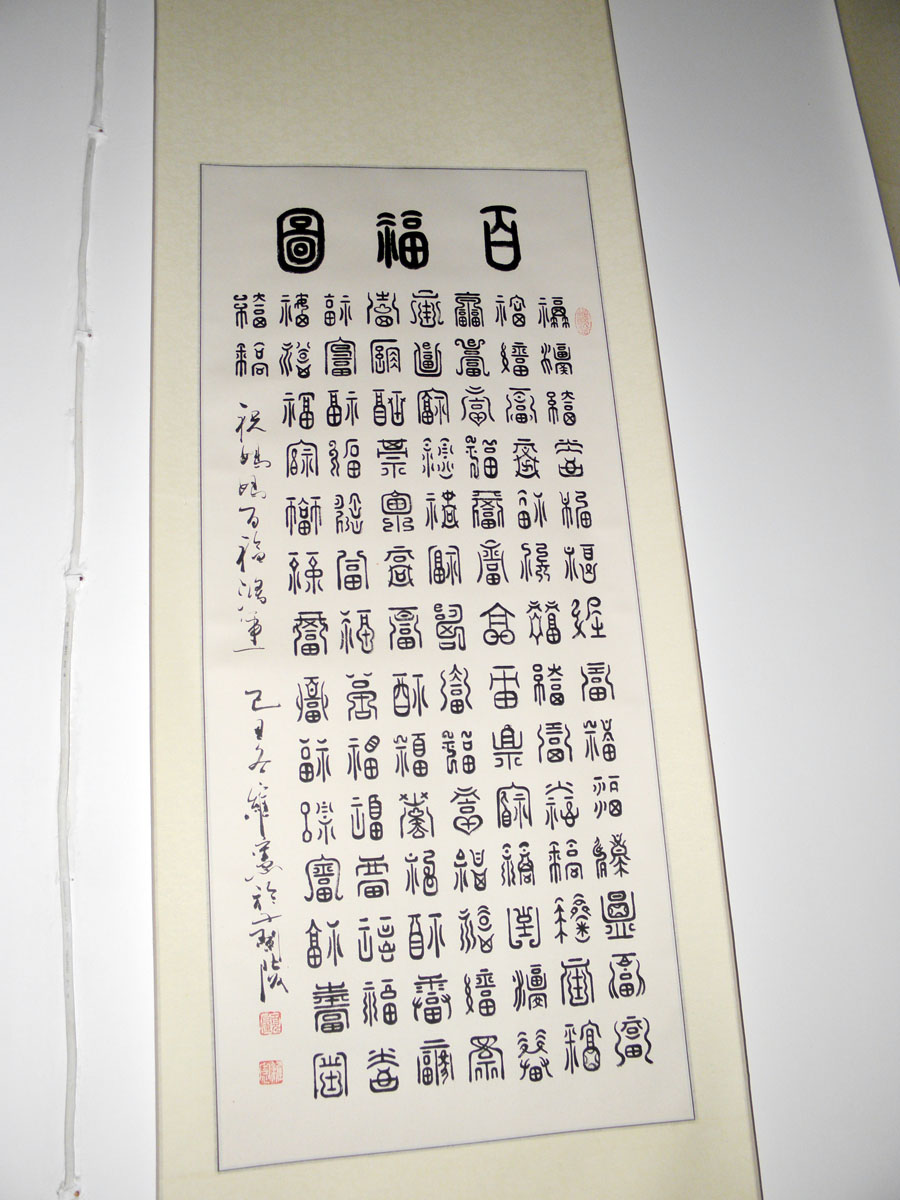 百福圖
福福福福福福福福福福福福福福
福福福福福福福福福福福福福福
福福福福福福福福福福福福福福
福福福福福福福福福福福福福福
福福福福福福福福福福福福福福
福福福福福福福福福福福福福福
福福福福福福福福福福福福福福
福福
祝媽媽百福鴻運 己丑冬維憲於蘭陵